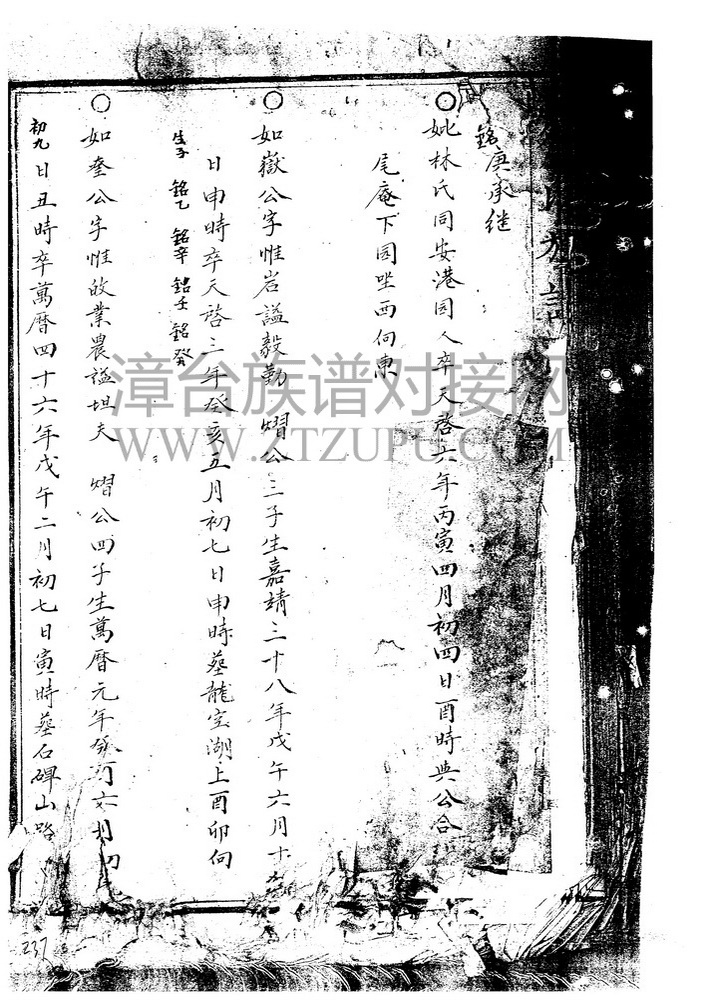 銘庚承继
妣林氏同安港园人卒天啓六年丙寅四月初四日酉時與公合
尾庵下园坐西向東
如嶽公字惟岩謚毅勤 熠公三子生嘉靖三十八年戊午六月十
日申時卒天啓三年癸亥五月初七日申時墓龍宝湖上酉卯向
生子 銘乙 銘辛 銘壬 銘癸
如奎公字惟啟業農謚坦夫 熠公四子生萬曆元年癸酉六月初
初九日丑時卒萬曆四十六年戊午二月初七日寅時墓石碑山路
漳台族谱对接网
WWW.ZTZUPU.COM
237